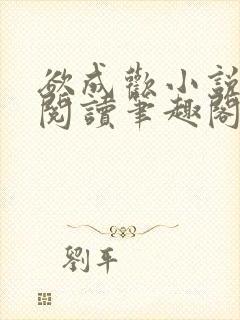 欲成歡小說
閱讀筆趣閣
劉平